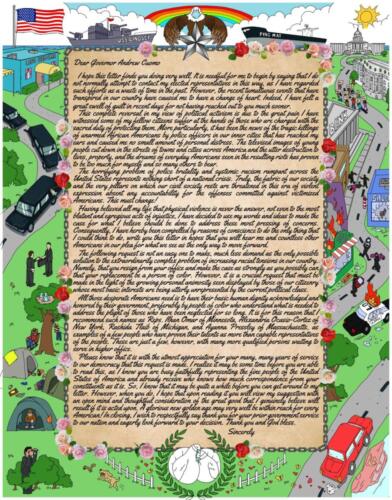 Dear Governor Andrew Cuomo
I hope this letter finds you doing very well. It is needful for me to begin by saying that I do
not normally attempt to contact my elected representatives in this way, as I have regarded
such efforts as a waste of time in the past. However, the recent tumultuous events that have
transpired in our country have caused me to have a change of heart. Indeed, I have felt a
great swell of guilt in recent days for not having reached out to you much sooner.
This complete reversal in my view of political activism is due to the great pain I have
witnessed some of my fellow citizens suffer at the hands of those who are charged with the
sacred duty of protecting them. More particularly, it has been the news of the tragic killings
of unarmed African Americans by police officers in our inner cities that has reached my
ears and caused me no small amount of personal distress. The televised images of young
people cut down in the streets of towns and cities across America and the utter destruction to
lives, property, and the dreams of everyday Americans seen in the resulting riots has proven
to be too much for myself and so many others to bear.
The horrifying problem of police brutality and systemic racism rampant across the
United States represents nothing short of a national crisis. Truly, the fabric of our society
and the very pillars on which our civil society rests are threatened in this era of violent
oppression absent any accountability for the offenses committed against victimized
Americans. This must change.
Having believed all my life that physical violence is never the answer, not even to the most
blatant and egregious acts of injustice, I have decided to use my words and ideas to make the
case for what I believe should be done to address these most pressing of concerns.
Consequently, I have hereby been compelled by reasons of conscience to do the only thing that
I could think to do, write you this letter in hopes that you will hear me and countless other
Americans in our plea for what we see as the only way to move forward.
The following request is not an easy one to make, much less demand as the only possible
solution to the extraordinarily complex problem of increasing racial tensions in our country.
Namely, that you resign from your office and make the case as strongly as you possibly can
that your replacement be a person of color. However, it is a crucial request that must be
made in the light of the growing personal animosity seen displayed by those of our citizenry
whose most basic interests are being utterly unrepresented by the current political class.
All these desperate Americans need is to have their basic human dignity acknowledged and
honored by their government, preferably by people of color who understand what is needed to
address the plight of those who have been neglected for so long. It is for this reason that I
recommend such names as Reps. Ilhan Omar of Minnesota, Alexandria Ocasio-Cortez of
New York, Rashida Tlaib of Michigan, and Ayanna Pressley of Massachusetts, as
examples of a few people who have proven their talents as more than capable representatives
of the people. These are just a few, however, with many more qualified persons waiting to
serve in higher office.
Please know that it is with the utmost appreciation for your many, many years of service
to our democracy that this request is made. I realize it may be some time before you are able
to read this, as I know you are busy faithfully representing the fine people of the United
States of America and already receive who knows how much correspondence from your
constituents as it is. So, I know that it may be quite a while before you can get around to my
letter. However, when you do, I hope that upon reading it you will view my suggestion with
an open mind and thoughtful consideration of the great good that I genuinely believe will
result if it is acted upon. A glorious new golden age may very well be within reach for every
American! In closing, I wish to respectfully say thank you for your prior government service
to our nation and eagerly look forward to your decision. Thank you and God bless.
Sincerely